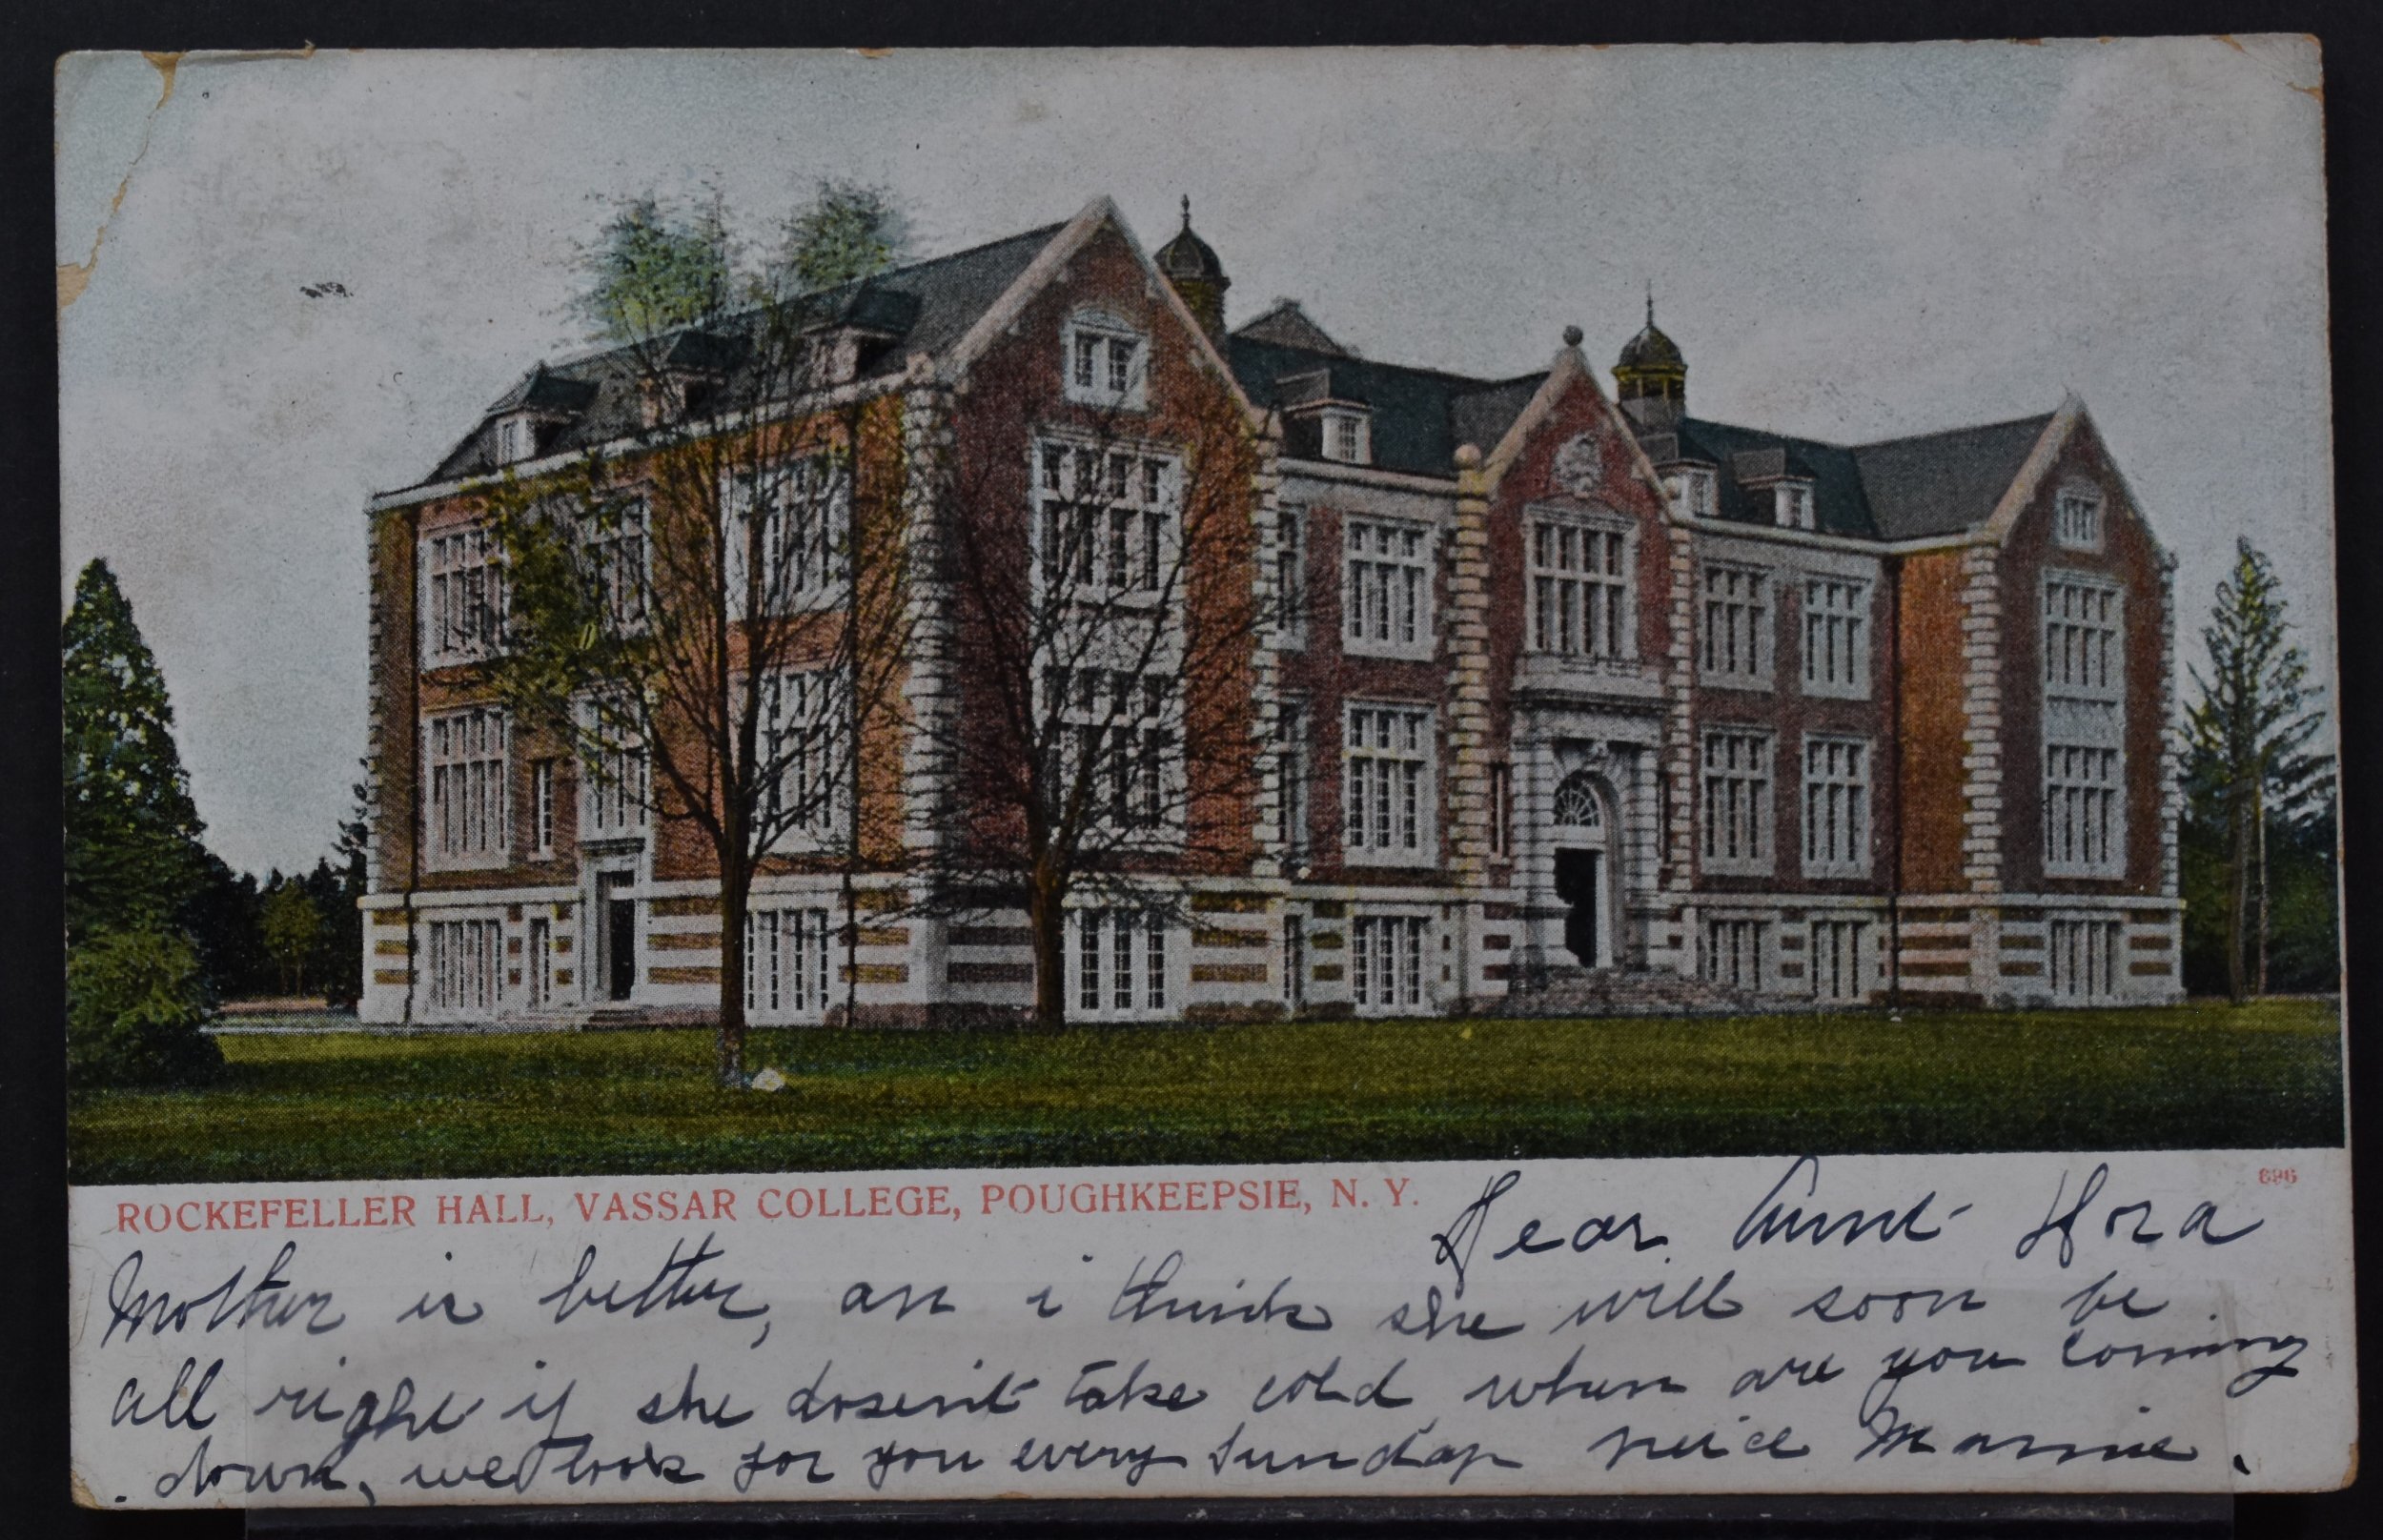 ROCKEFELLER HALL, VASSAR COLLEGE, POUGHKEEPSIE, N. Y.
696
Dear Aunt
Mother is better, an i think she will soon be
all right if she dosent take cold when are you coming
down, we look for you every Sunday neice Mamie.